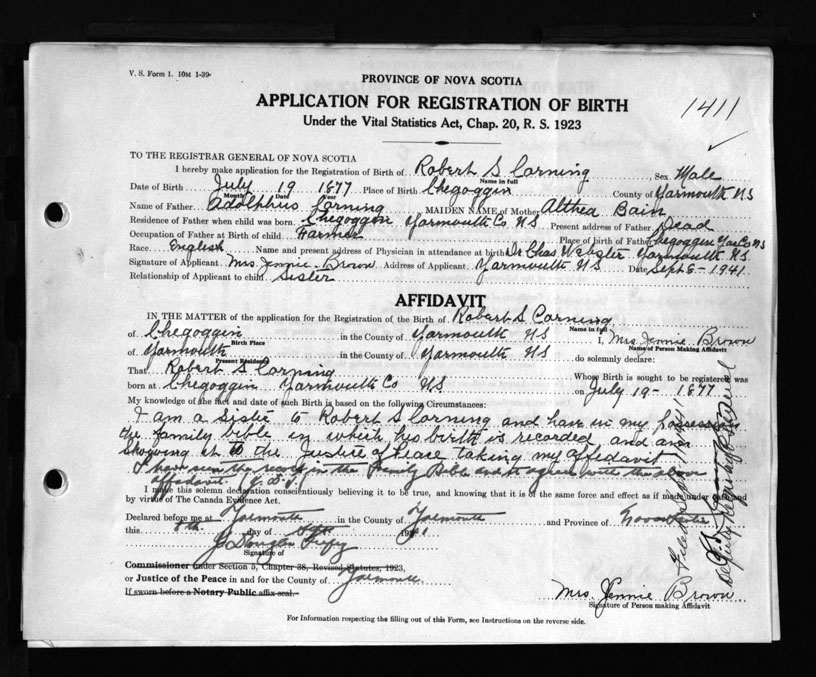 V. S. Form 1. 10M 1-39
PROVINCE OF NOVA SCOTIA
APPLICATION FOR REGISTRATION OF BIRTH
1411
Under the Vital Statistics Act, Chap. 20, R. S. 1923
TO THE REGISTRAR GENERAL OF NOVA SCOTIA
I hereby make application for the Registration of Birth of Robert S Corning Sex Male
Name in full
Date of Birth July 19 1877 Place of Birth Chegoggin County of Yarmouth NS
Month Date Year
Name of Father Adolphus Corning MAIDEN NAME of Mother Althea Bain
Residence of Father when child was born. Chegoggin Yarmouth Co NS Present address of Father Dead
Occupation of Father at Birth of child Farmer Place of birth of Father Chegoggin Yar Co NS
Race. English Name and present address of Physician in attendance at birth Dr Chas Webster Yarmouth NS.
Signature of Applicant Mrs. Jennie Brown Address of Applicant Yarmouth NS Date Sept 8 - 1941
Relationship of Applicant to child Sister
AFFIDAVIT
IN THE MATTER of the application for the Registration of the Birth of Robert S. Corning
Name in full
of Chegoggin in the County of Yarmouth NS I, Mrs Jennie Brown
Birth Place Name of Person Making Affidavit
of Yarmouth in the County of Yarmouth NS do solemnly declare:
Present Residence
That Robert S Corning Whose Birth is sought to be registered was
born at Chegoggin Yarmouth Co NS on July 19 - 1877
My knowledge of the fact and date of such Birth is based on the following Circumstances:
I am a Sister to Robert S Corning and have in my possession
the family bible in which his birth is recorded, and am
Showing it to the Justice of Peace taking my affidavit
I have seen the record in the Family Bible and it agrees with the above
affidavit.
I make this solemn declaration conscientiously believing it to be true, and knowing that it is of the same force and effect as if made under oath and
by virtue of The Canada Evidence Act.
Declared before me at Yarmouth in the County of Yarmouth and Province of Nova Scotia
this 8th day of Sept 1941
J Douglas
Signature of
Commissioner under Section 5, Chapter 38, Revised Statutes, 1923,
or Justice of the Peace in and for the County of Yarmouth
If sworn before a Notary Public affix seal.
Mrs. Jennie Brown
Signature of Person making Affidavit
Deputy Registrar General
For Information respecting the filling out of this Form, see Instructions on the reverse side.